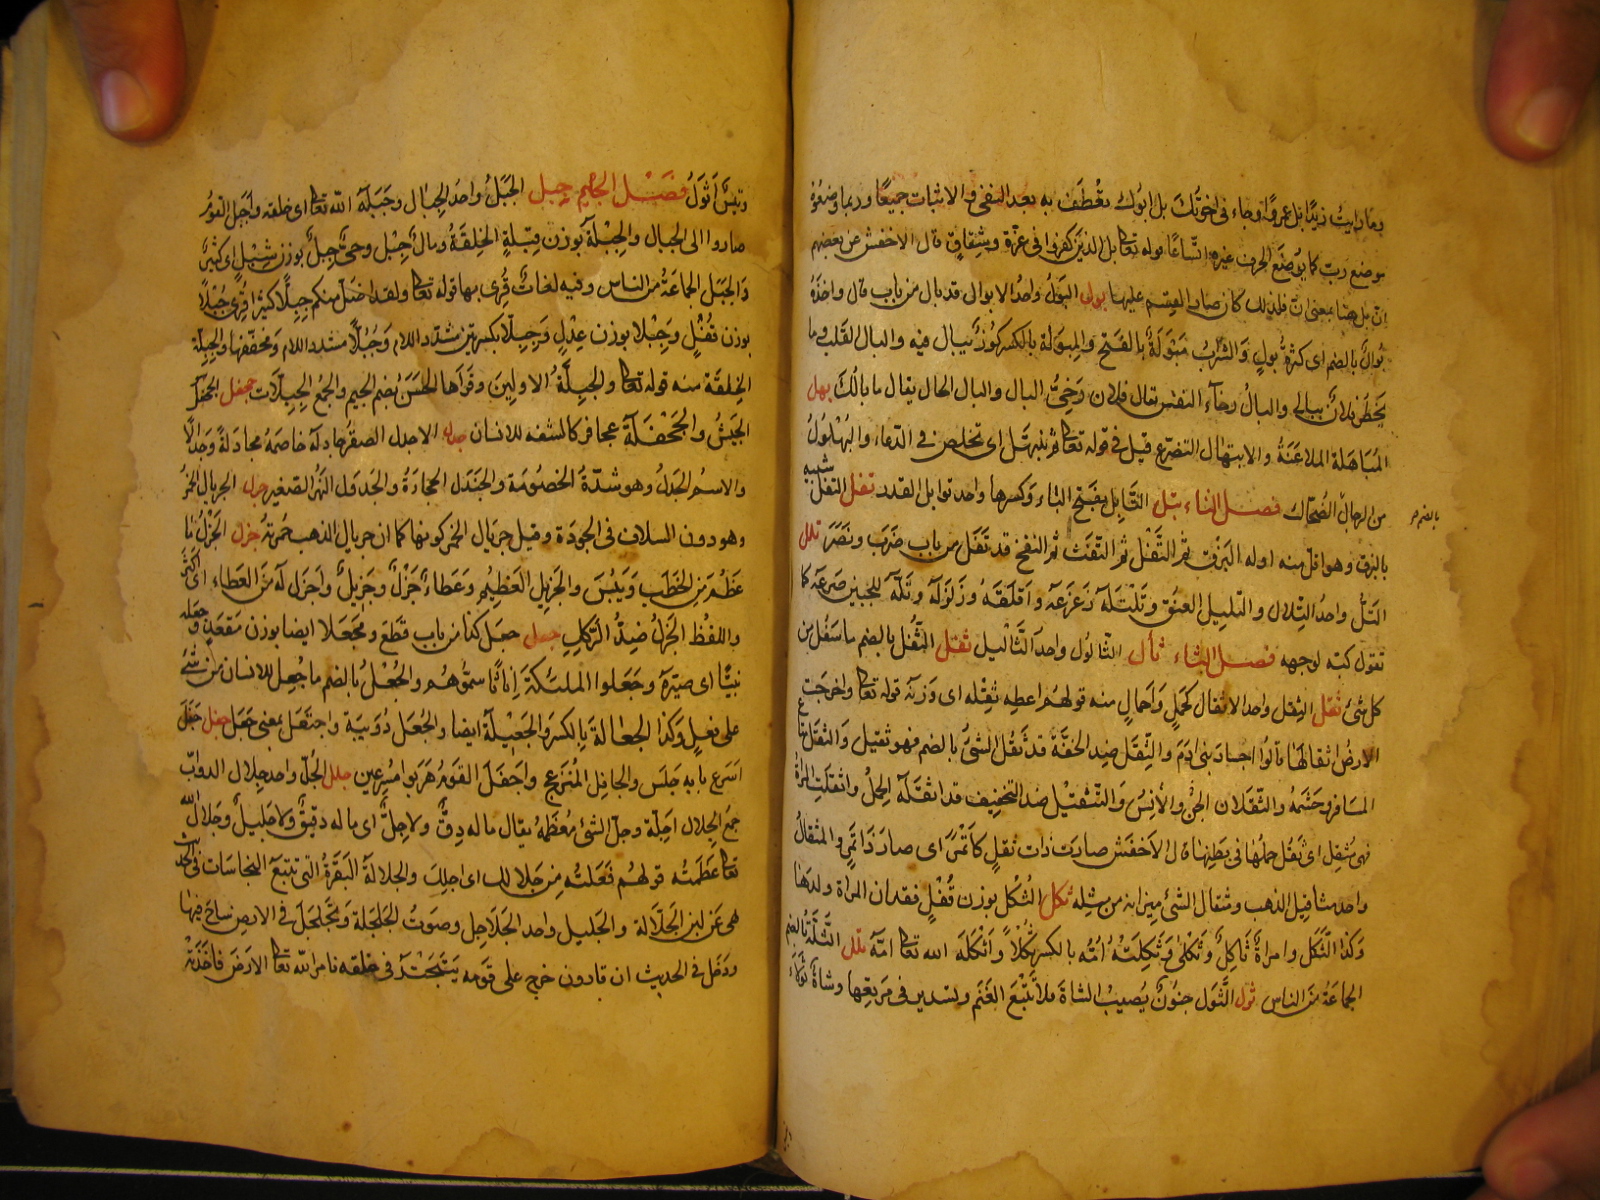 بل عمروًا وجاء فى اخوتك بل ابوك تعطف به بعد النفى والاثبات جميعًا وربما وضعوه
موضع ربّ كما يوضع الحرف غيره اتساعا قوله تعا بل الذين كفروا فى عزة وشقاق قال الاخفش عن بعضهم
انّ بل هنا بمعنى انّ فلذلك صار القسم عليها بول البول واحد الابوال قد بال من باب قال واخذه
بوالٌ بالضم اى كثرة بول والشراب مبولة بالفتح والمبولة بالكسر كوز يبال فيه والبال القلب وما
يخطر فلان ببالى والبال رخاء النفس يقال فلان رخىّ البال والبال الحال يقال ما بالك بهل
المباهلة الملاعنة والابتهال التضرع قيل فى قوله تعا ثم نبتهل اى نخلص فى الدعاء والبهلول
من الرجال الضحاك فصل التاء تبل التابل بفتح الباء وكسرها واحد توابل القدر تفل التفل شبيه
بالبزق وهو اقل منه اوله البزق ثم التفل ثم النفث ثم النفخ قد تفل من باب ضرب ونصر تلل
التلّ واحد التلال والتليل العنق وتلتله زعزعه واقلقه وزلزله وتلّه للجبين صرعه كما
تقول كبّه لوجهه فصل الثاء ثأل الثالول واحد الثآليل ثفل الثفل بالضم ما سفل من
كل شئ ثقل الثقل واحد الاثقال كحمل واحمال منه قولهم اعطه ثقله اى وزنه قوله تعا واخرجت
الارض اثقالها قالوا اجساد بنى ادم والثقل ضد الخفة قد ثقل الشئ بالضم فهو ثقيل والثقل متاع
المسافر وحشمه والثقلان الجن والانس والتثقيل ضد التخفيف قد اثقله الحمل واثقلت المراة
فهى مثقل اى ثقل حملها فى بطنها قال الاخفش صارت ذات ثقل كاتمر اى صار ذا تمر والمثقال
واحد مثاقيل الذهب ومثقال الشئ ميزانه من مثله ثكل الثكل بوزن قفل فقدان المراة ولدها
وكذا الثكل وامراة ثاكل وثكلى وثكلته امّه بالكسر ثكلاً واثكله الله تعا امّه ثلل الثلة بالضم
الجماعة من الناس ثول الثول جنون يصيب الشاة فلا تتبع الغنم وتستدير فى مرتعها وشاة ثولاء
وتيس اثول فصل الجيم جبل الجبل واحد الجبال وجبله الله تعا اى خلقه واجبل القوم
صاروا الى الجبال والجبلة بوزن قبلة الخلقة ومال جبل وحىّ جبل بوزن شبل اى كثير
والجبل الجماعة من الناس وفيه لغات قرى بها قوله تعا ولقد اضل منكم جبلاً كثيرا قرى جبلا
بوزن قفل وجبلا بوزن عدل وجبلا بكسرتين مشدد اللام وجبلاً مشدد اللام ومخففها والجبلة
الخلقة منه قوله تعا والجبلة الاولين وقراها الحسن بضم الجيم والجمع الجبلات جحفل الجحفل
الجيش والجحفلة كالشفة للانسان جدل الاجدل الصقر جادله خاصمه مجادلة وجدالا
والاسم الجدل وهو شدة الخصومة والجندل الحجارة والجدول النهر الصغير جرل الجريال الخمر
وهو دون السلاف فى الجودة وقيل جريال الخمر لونها كما ان جريال الذهب حمرته جزل الجزل ما
عظم من الحطب ويبس والجزيل العظيم وعطاء جزل وجزيل واجزل له من العطاء اى اكثر
واللفظ الجزل ضد الركيك جعل جعل كذا من باب قطع ومجعلا ايضا بوزن مقعد وجعله
نبيًا اى صيّره وجعلوا الملئكة اناثا سمّوهم والجعل بالضم ما جعل للانسان من شئ
على فعل وكذا الجعالة بالكسر والجعيلة ايضا والجعل دويبة واجتعل بمعنى جعل جفل جفل
اسرع بابه جلس والجافل المنزعج واجفل القوم هربوا مسرعين جلل الجل واحد جلال الدواب
جمع الجلال اجلة وجل الشئ معظمه يقال ما له دق ولا جل اى ما له دقيق ولا جليل وجلال الله
تعا عظمته قولهم فعلته من جلالك اى اجلك والجلالة البقرة التى تتبع النجاسات فى الحديث
نهى عن لبن الجلالة والجليل واحد الجلاجل وصوت الجلجلة وتجلجل فى الارض ساخ فيها
ودخل فى الحديث ان قارون خرج على قومه يتبختر فى خلقه فامر الله تعا الارض فاخذته